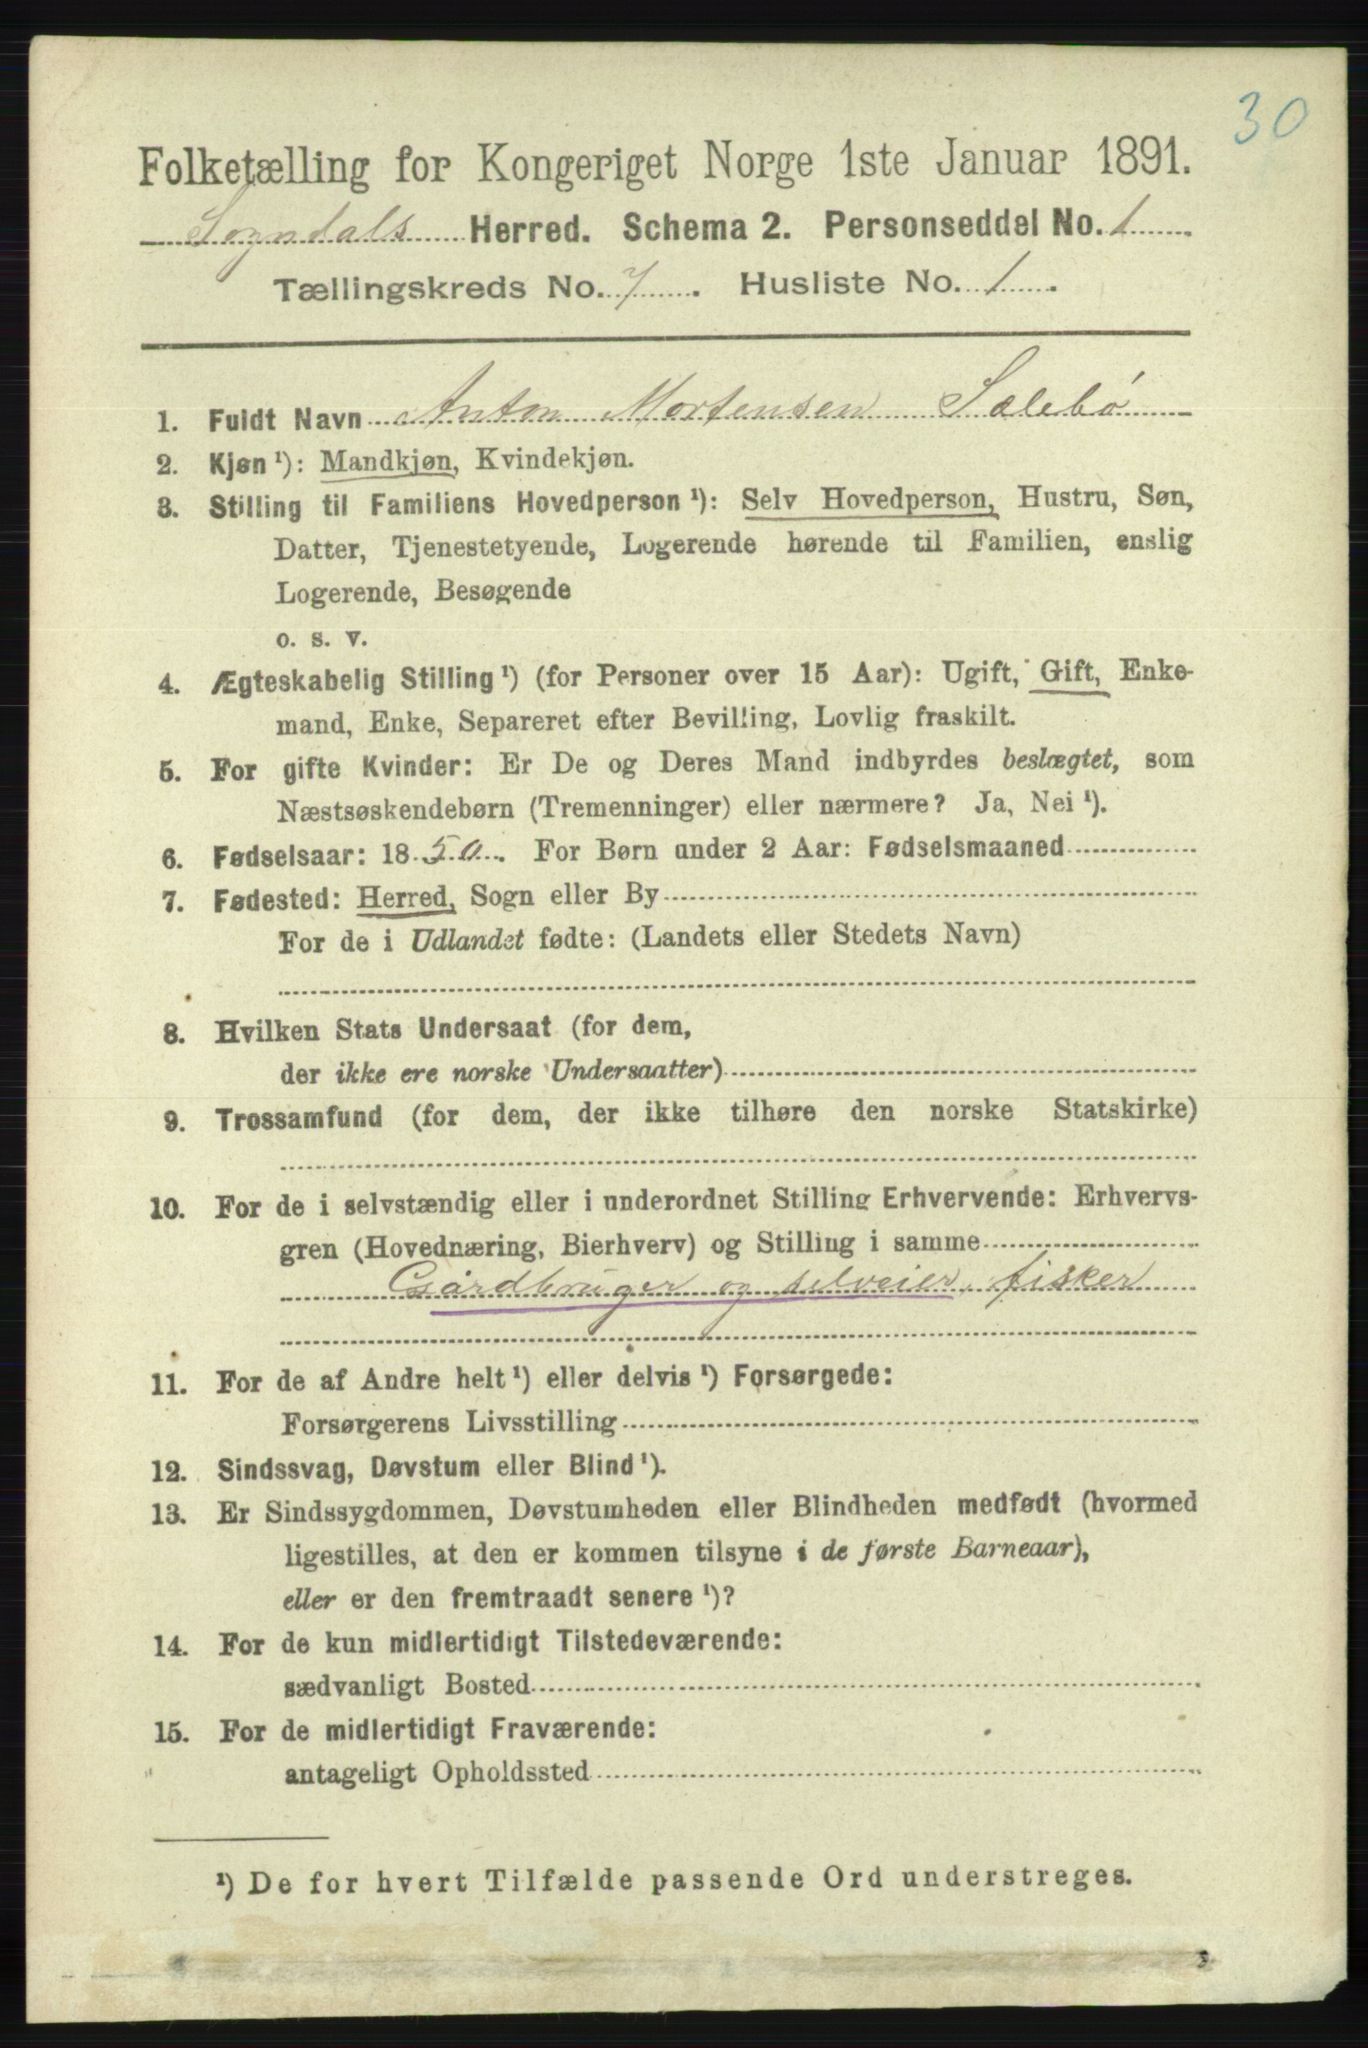 30
Folketælling for Kongeriget Norge 1ste Januar 1891.
Sogndals Herred. Schema 2. Personseddel No. 1
Tællingskreds No. 7. Husliste No. 1.
1. Fuldt Navn Anton Mortensen Sælebø
2. Kjøn ¹): Mandkjøn, Kvindekjøn.
3. Stilling til Familiens Hovedperson ¹): Selv Hovedperson, Hustru, Søn,
Datter, Tjenestetyende, Logerende hørende til Familien, enslig
Logerende, Besøgende
o. s. v.
4. Ægteskabelig Stilling ¹) (for Personer over 15 Aar): Ugift, Gift, Enke-
mand, Enke, Separeret efter Bevilling, Lovlig fraskilt.
5. For gifte Kvinder: Er De og Deres Mand indbyrdes beslægtet, som
Næstsøskendebørn (Tremenninger) eller nærmere? Ja, Nei ¹).
6. Fødselsaar: 1850. For Børn under 2 Aar: Fødselsmaaned
7. Fødested: Herred, Sogn eller By
For de i Udlandet fødte: (Landets eller Stedets Navn)
8. Hvilken Stats Undersaat (for dem,
der ikke ere norske Undersaatter)
9. Trossamfund (for dem, der ikke tilhøre den norske Statskirke)
10. For de i selvstændig eller i underordnet Stilling Erhvervende: Erhvervs-
gren (Hovednæring, Bierhverv) og Stilling i samme
Gårdbruger og selveier, fisker
11. For de af Andre helt ¹) eller delvis ¹) Forsørgede:
Forsørgerens Livsstilling
12. Sindssvag, Døvstum eller Blind ¹).
13. Er Sindssygdommen, Døvstumheden eller Blindheden medfødt (hvormed
ligestilles, at den er kommen tilsyne i de første Barneaar),
eller er den fremtraadt senere ¹)?
14. For de kun midlertidigt Tilstedeværende:
sædvanligt Bosted
15. For de midlertidigt Fraværende:
antageligt Opholdssted
¹) De for hvert Tilfælde passende Ord understreges.